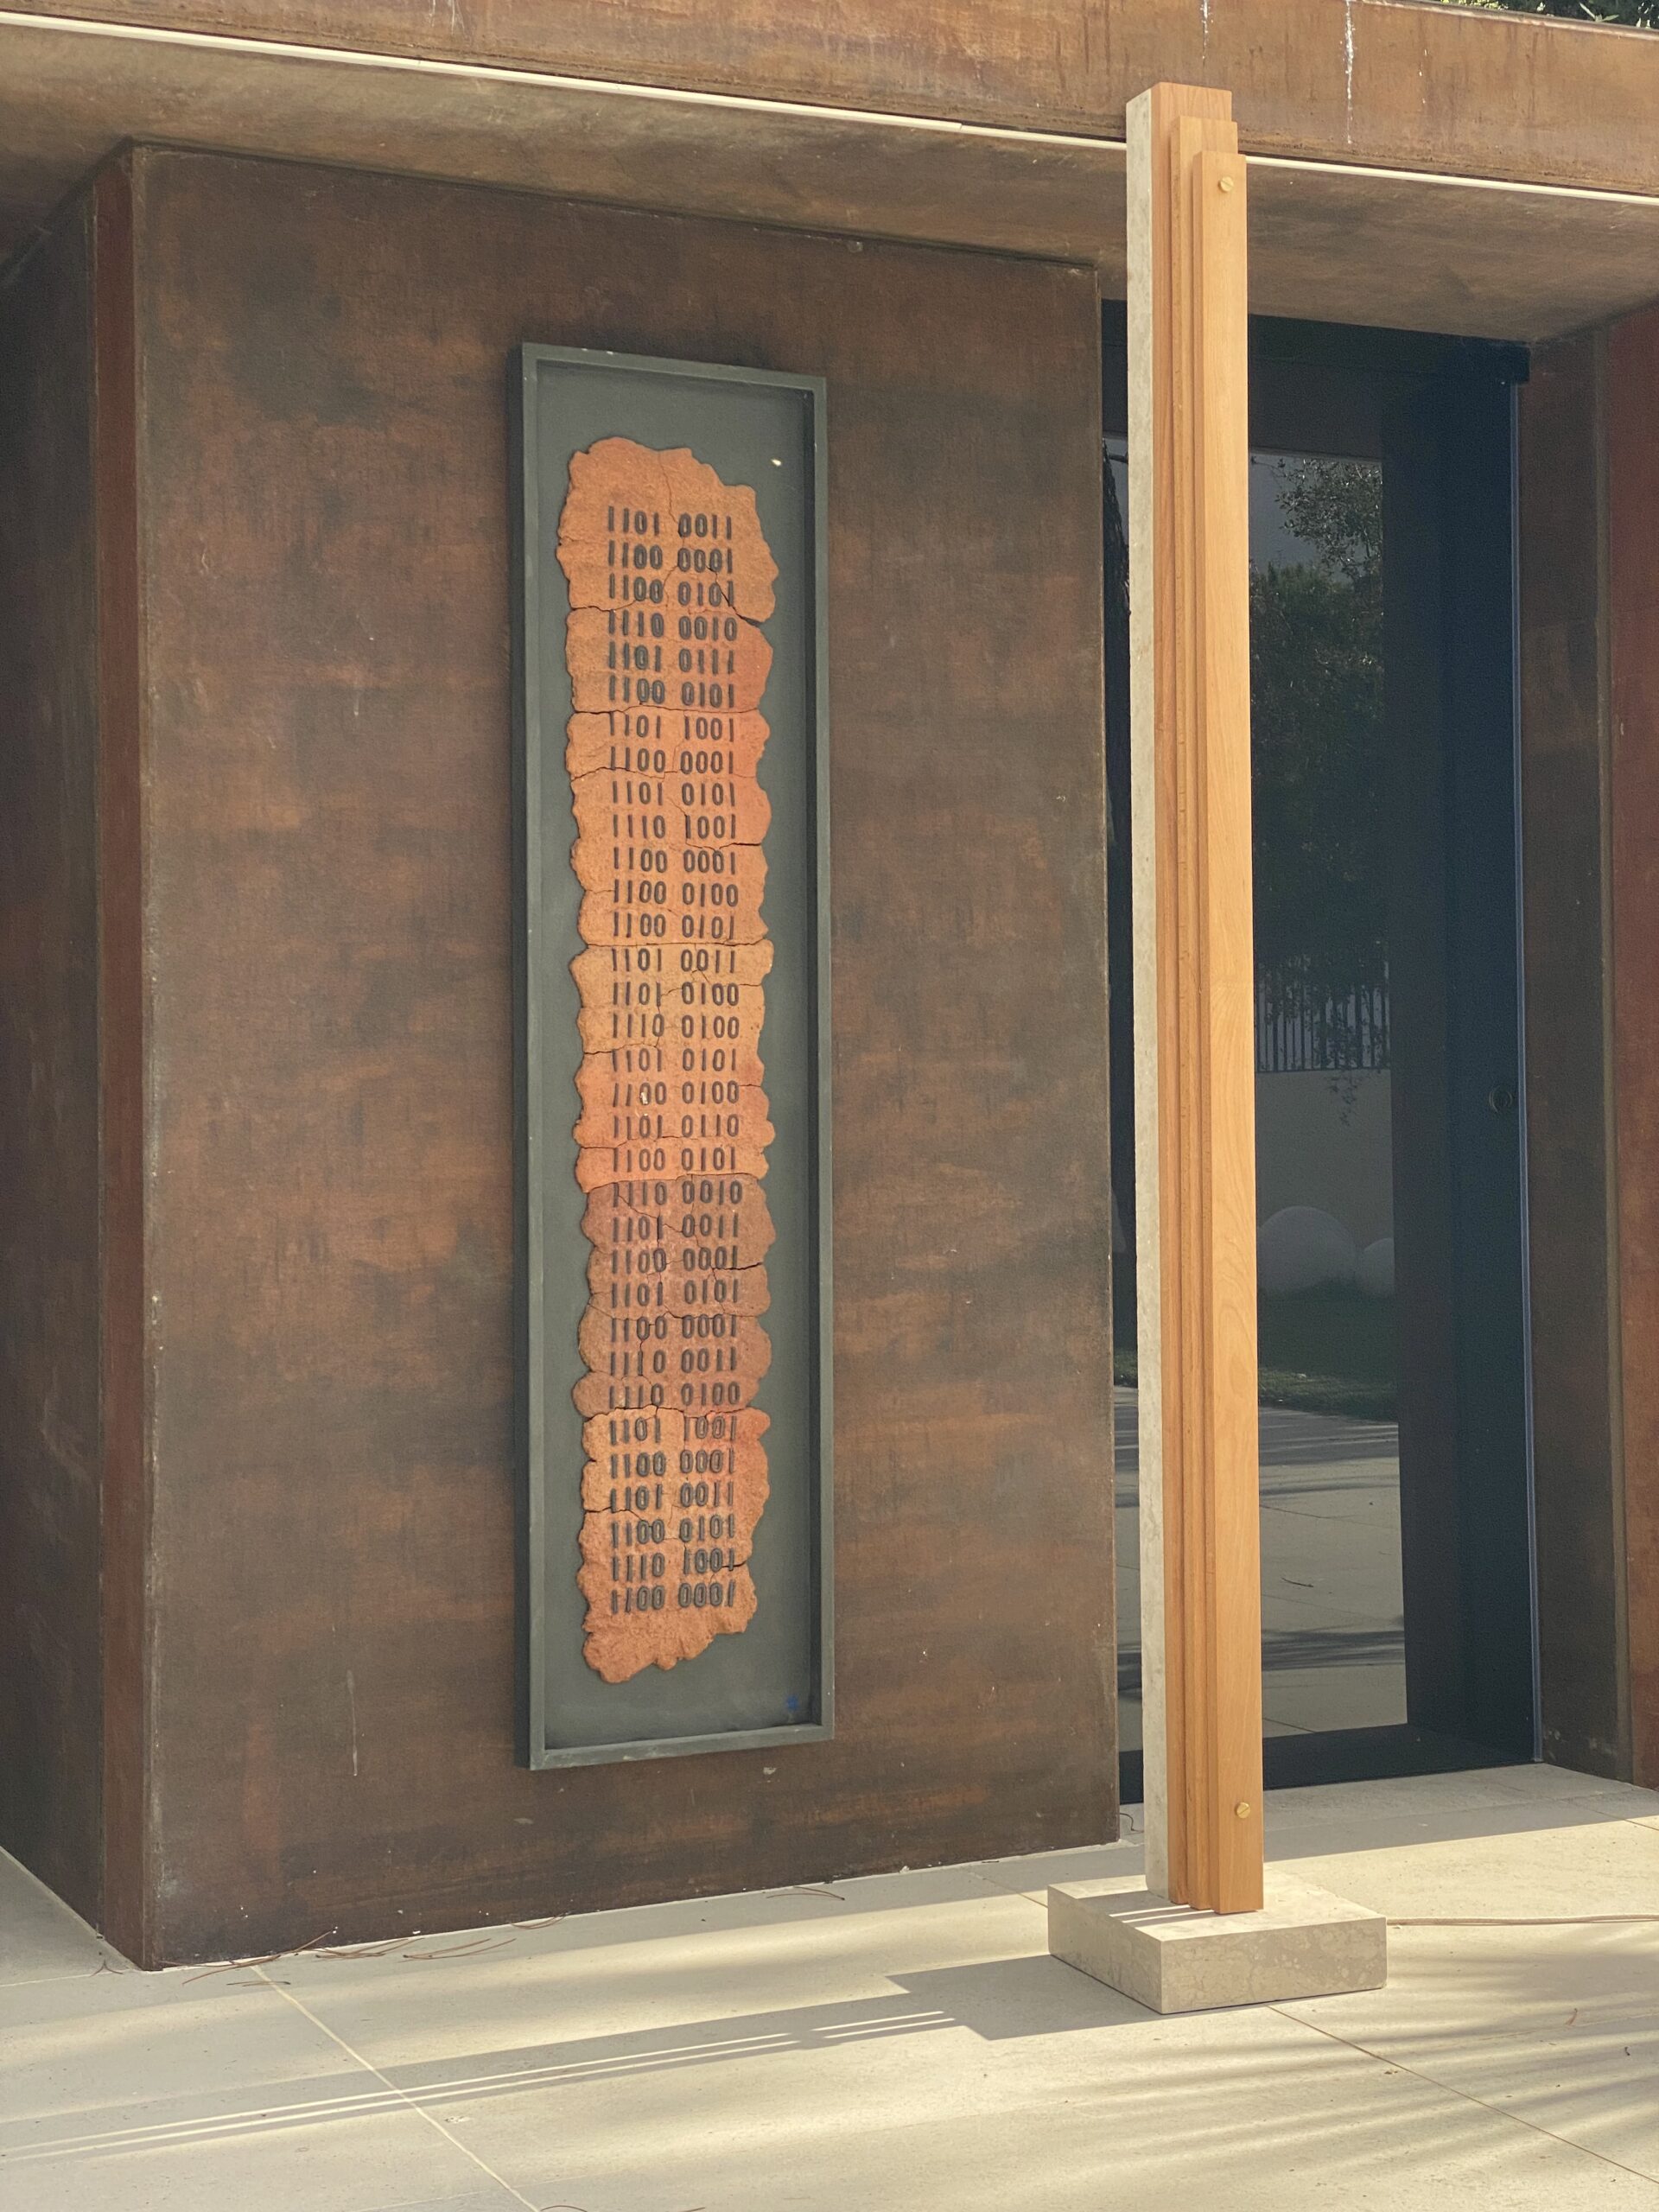 1101 0011
1100 0001
1100 0101
1110 0010
1101 0111
1100 0101
1101 1001
1100 0001
1101 0101
1110 1001
1100 0001
1100 0100
1100 0101
1101 0011
1101 0100
1110 0100
1101 0101
1100 0100
1101 0110
1100 0101
1110 0010
1101 0011
1100 0001
1101 0101
1100 0001
1110 0011
1110 0100
1101 1001
1100 0001
1101 0011
1100 0101
1110 1001
1100 0001